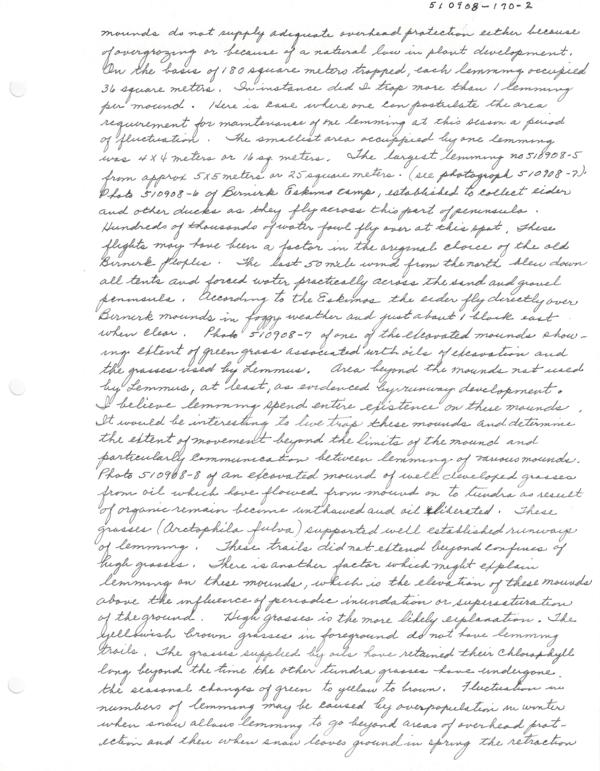 510908-170-2
mounds do not supply adequate overhead protection either because
of overgrazing or because of a natural law in plant development.
On the basis of 180 square meters trapped, each lemming occupied
36 square meters. In instance did I trap more than 1 lemming
per mound. Here is case where one can postulate the area
requirement for maintenance of one lemming at this season a period
of fluctuation. The smallest area occuppied by one lemming
was 4x4 meters or 16 sq meters. The largest lemming no 510908-5
from approx 5x5 meters or 25 square meters. (see photograph 510908-7).
Photo 510908-6 of Bernirk Eskimo camp, established to collect eider
and other ducks as they fly across this part of peninsula.
Hundreds of thousands of water fowl fly over at this spot. These
flights may have been a factor in the original choice of the old
Birnirk Peoples. The last 50 mile wind from the north blew down
all tents and forced water practically across the sand and gravel
peninsula. According to the Eskimos the eider fly directly over
Bernirk mounds in foggy weather and just about 1 block east
when clear. Photo 510908-7 of one of the excavated mounds show-
ing extent of green grass associated with oils of excavation and
the grasses used by Lemmus. Area beyond the mounds not used
by Lemmus, at least, as evidenced by runway development.
I believe lemming spend entire existence on these mounds.
It would be interesting to live trap these mounds and determine
the extent of movement beyond the limits of the mound and
particularly communication between lemming of various mounds.
Photo 510908-8 of an excavated mound of well developed grasses
from oil which have flowed from mound on to tundra as result
of organic remain become unthawed and oil liberated. These
grasses (Arctophila fulva) supported well established runways
of lemming. These trails did not extend beyond confines of
high grasses. There is another factor which might explain
lemming on these mounds, which is the elevation of these mounds
above the influence of periodic inundation or supersaturation
of the ground. High grasses is the more likely explanation. The
yellowish brown grasses in foreground do not have lemming
trails. The grasses supplied by oils have retained their chlorophyll
long beyond the time the other tundra grasses have undergone
the seasonal changes of green to yellow to brown. Fluctuation in
numbers of lemming may be caused by overpopulation in winter
when snow allows lemming to go beyond areas of overhead prot-
ection and then when snow leaves ground in spring the retraction